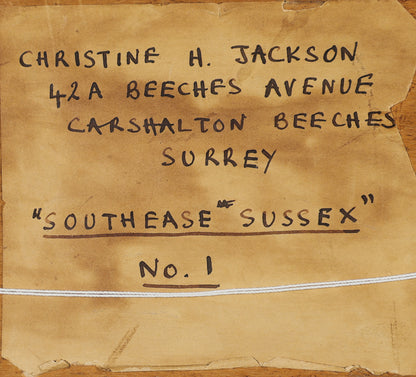 CHRISTINE H. JACKSON
42A BEECHES AVENUE
CARSHALTON BEECHES
SURREY
"SOUTHEASE SUSSEX"
No. 1